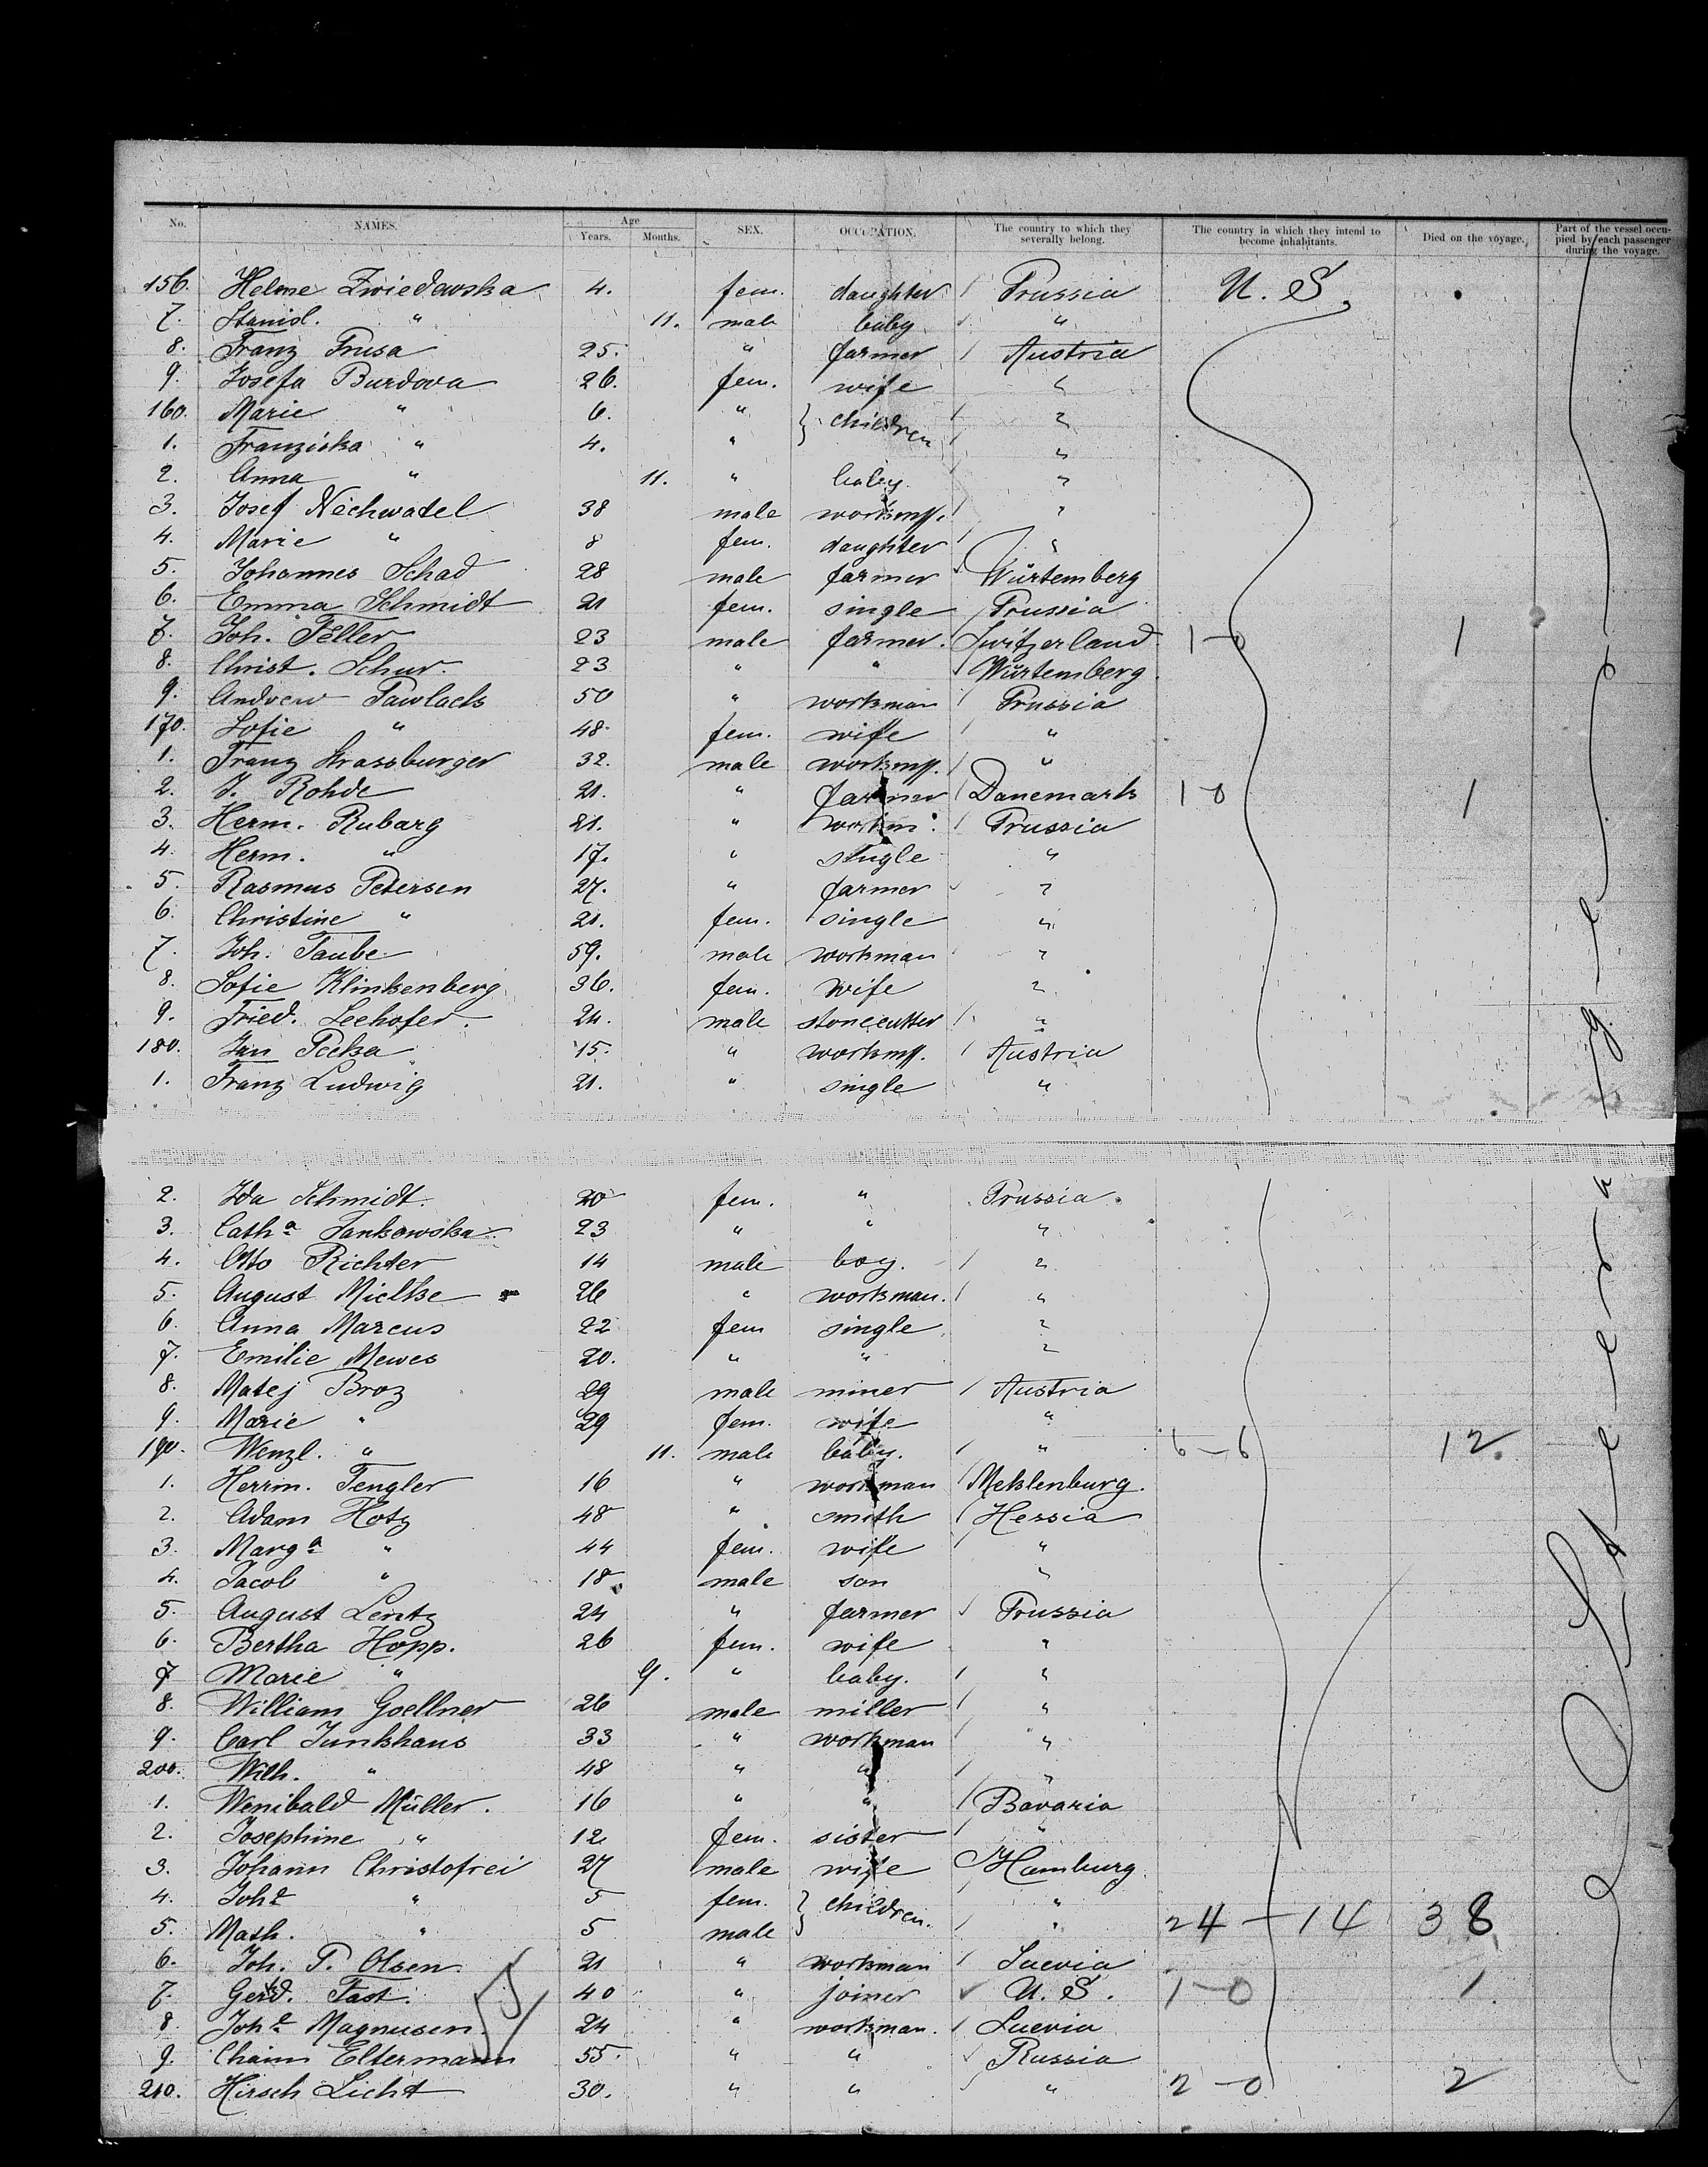 No. NAMES. Age Years. Months. SEX. OCCUPATION. The country to which they severally belong. The country in which they intend to become inhabitants. Died on the voyage. Part of the vessel occupied by each passenger during the voyage.
156. Helene Zwiedewska 4. fem. daughter Prussia U. S.
7. Stanisl. " 11. male baby "
8. Franz Prusa 25. " farmer Austria
9. Josefa Burdova 26. fem. wife "
160. Marie " 6. " } children "
1. Franziska " 4. " "
2. Anna " 11. " baby. "
3. Josef Nechwatel 38 male workm. "
4. Marie " 8 fem. daughter "
5. Johannes Schad 28 male farmer Würtemberg
6. Emma Schmidt 21 fem. single Prussia
7. Joh. Feller 23 male farmer. Switzerland 1-0 1
8. Christ. Schur. 23 " " Würtemberg.
9. Andrew Pawlack 50 " workman Prussia
170. Sofie " 48. fem. wife "
1. Franz Strassburger 32. male workm. "
2. J. Rohde 21. " farmer Danemark 1-0 1
3. Herm. Rubarg 21. " workm. Prussia
4. Herm. " 17. " single "
5. Rasmus Petersen 27. " farmer "
6. Christine " 21. fem. single "
7. Joh. Taube 59. male workman "
8. Sofie Klinkenberg 36. fem. wife "
9. Fried. Seehofer. 24. male stonecutter "
180. Jan Pecka 15. " workm. Austria
1. Franz Ludwig 21. " single "
2. Ida Schmidt. 20 fem. " Prussia.
3. Cath.a Jankowska 23 " " "
4. Otto Richter 14 male boy. "
5. August Mielke 26 " workman. "
6. Anna Marcus 22 fem single "
7. Emilie Mewes 20. " " "
8. Matej Broz 29 male miner Austria
9. Marie " 29 fem. wife "
190. Wenzl. " 11. male baby. " 6-6 12
1. Herrm. Fengler 16 " workman Meklenburg.
2. Adam Hotz 48 " smith Hessia
3. Marg.a " 44 fem. wife "
4. Jacob " 18 male son "
5. August Lentz 24 " farmer Prussia
6. Bertha Hopp. 26 fem. wife "
7 Marie " 9. " baby. "
8. William Goellner 26 male miller "
9. Carl Junkhans 33 " workman "
200. Wilh. " 48 " " "
1. Wenibald Müller. 16 " " Bavaria
2. Josephine " 12 fem. sister "
3. Johann Christofrei 27 male wife Hamburg.
4. Joh.e " 5 fem. } children. "
5. Math. " 5 male " 24-14 38
6. Joh. P. Olsen. 21 " workman Suevia
7. Gerd. Fast. 40 " joiner U. S. 1-0 1
8 Joh.s Magnusen. 24 " workman. Suevia
9. Chaim Eltermann 55. " " Russia
210. Hirsch Licht 30. " " " 2-0 2
Steerage